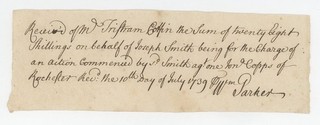 Receiv'd of Mr Tristram Coffin the Sum of twenty Eight
Shillings on behalf of Joseph Smith being for the Charge of
an action Commenced by sd Smith agt one Jonª Copps of
Rochester Recd the 10th Day of July 1739
Parker